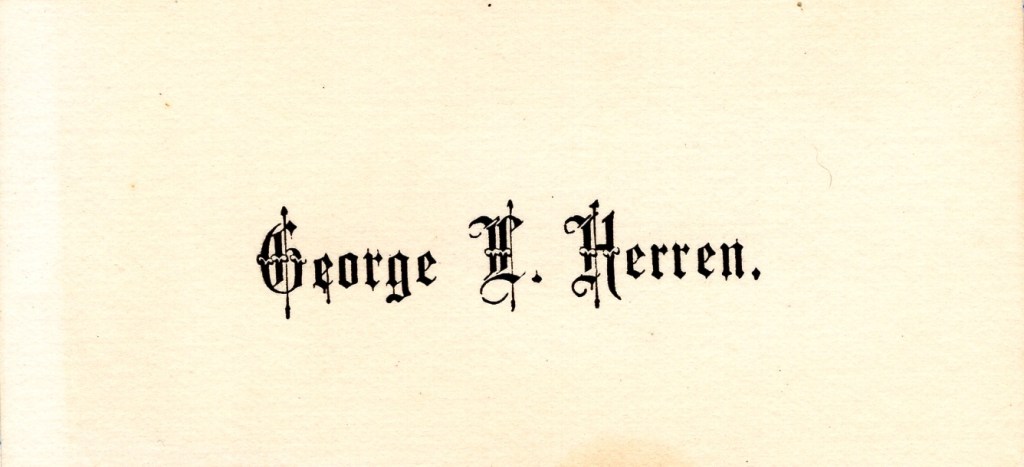 George L. Herren.